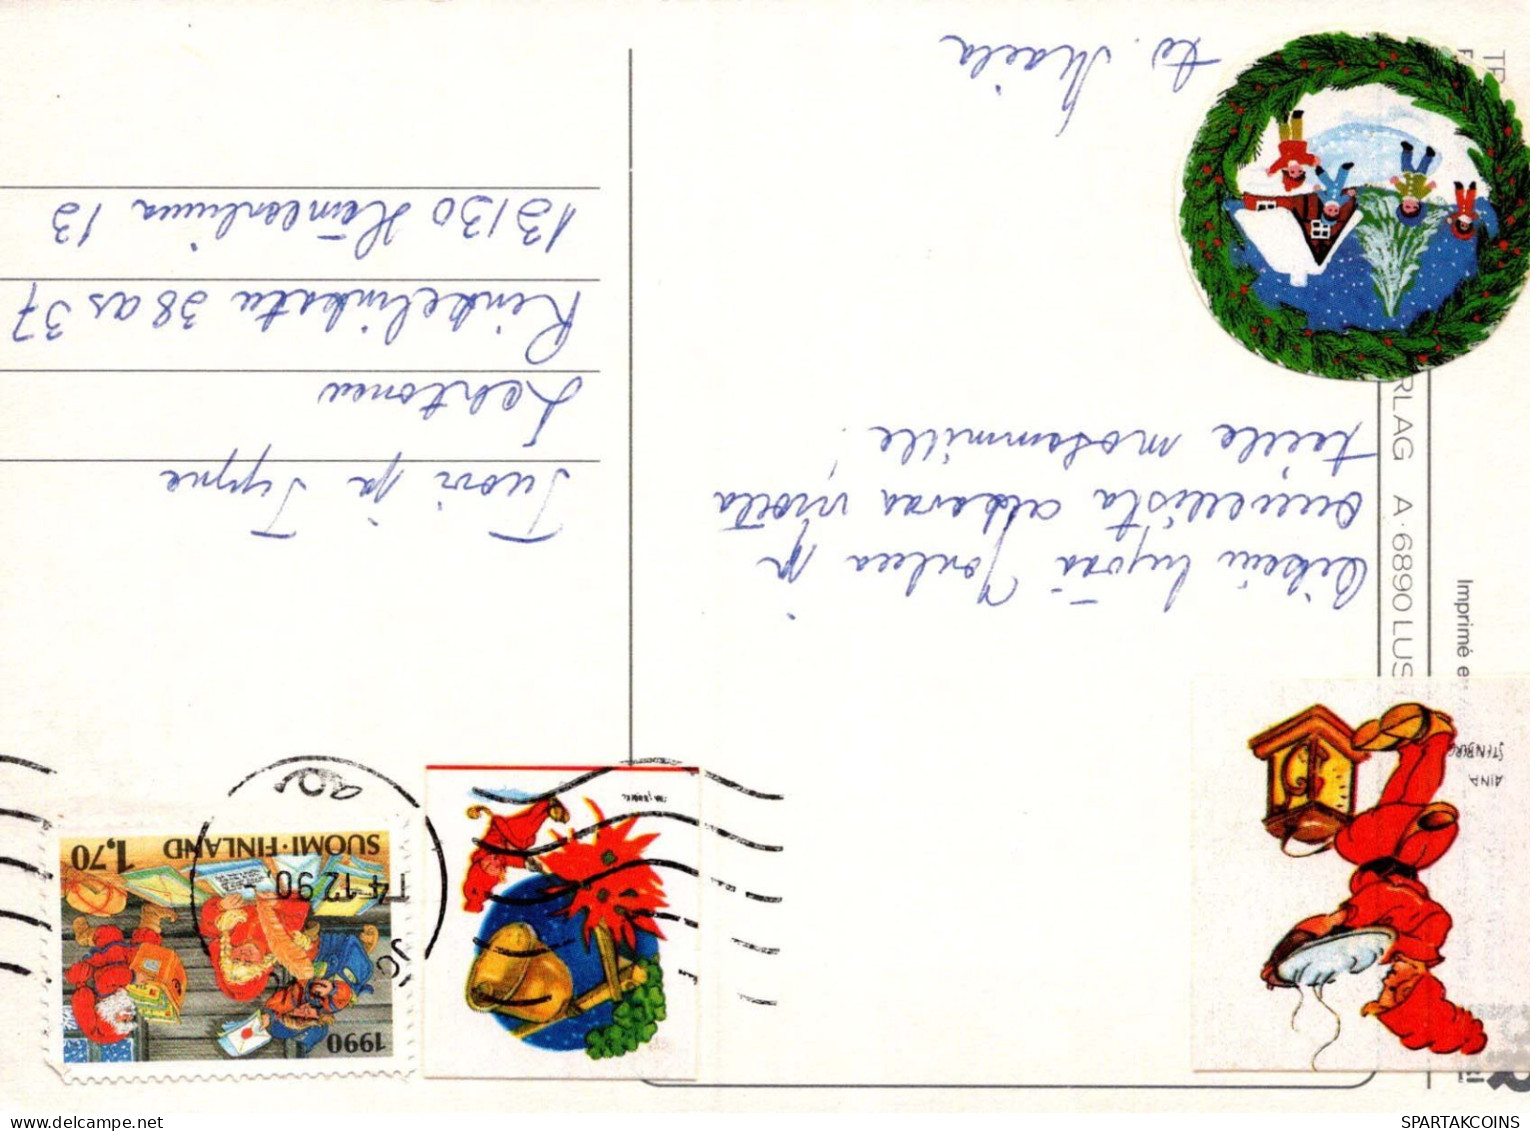 Oikein hyvää Joulua ja
onnellista alkavaa vuotta
teille molemmille!
tv. Maila
1990
SUOMI·FINLAND 1,70
14.12.90
Tuovi ja Seppo
Lehtonen
38 as 37
13130 Hämeenlinna 13
RLAG A·6890 LUS
Imprimé e
AINA
STENBERG
SPARTAKCOINS